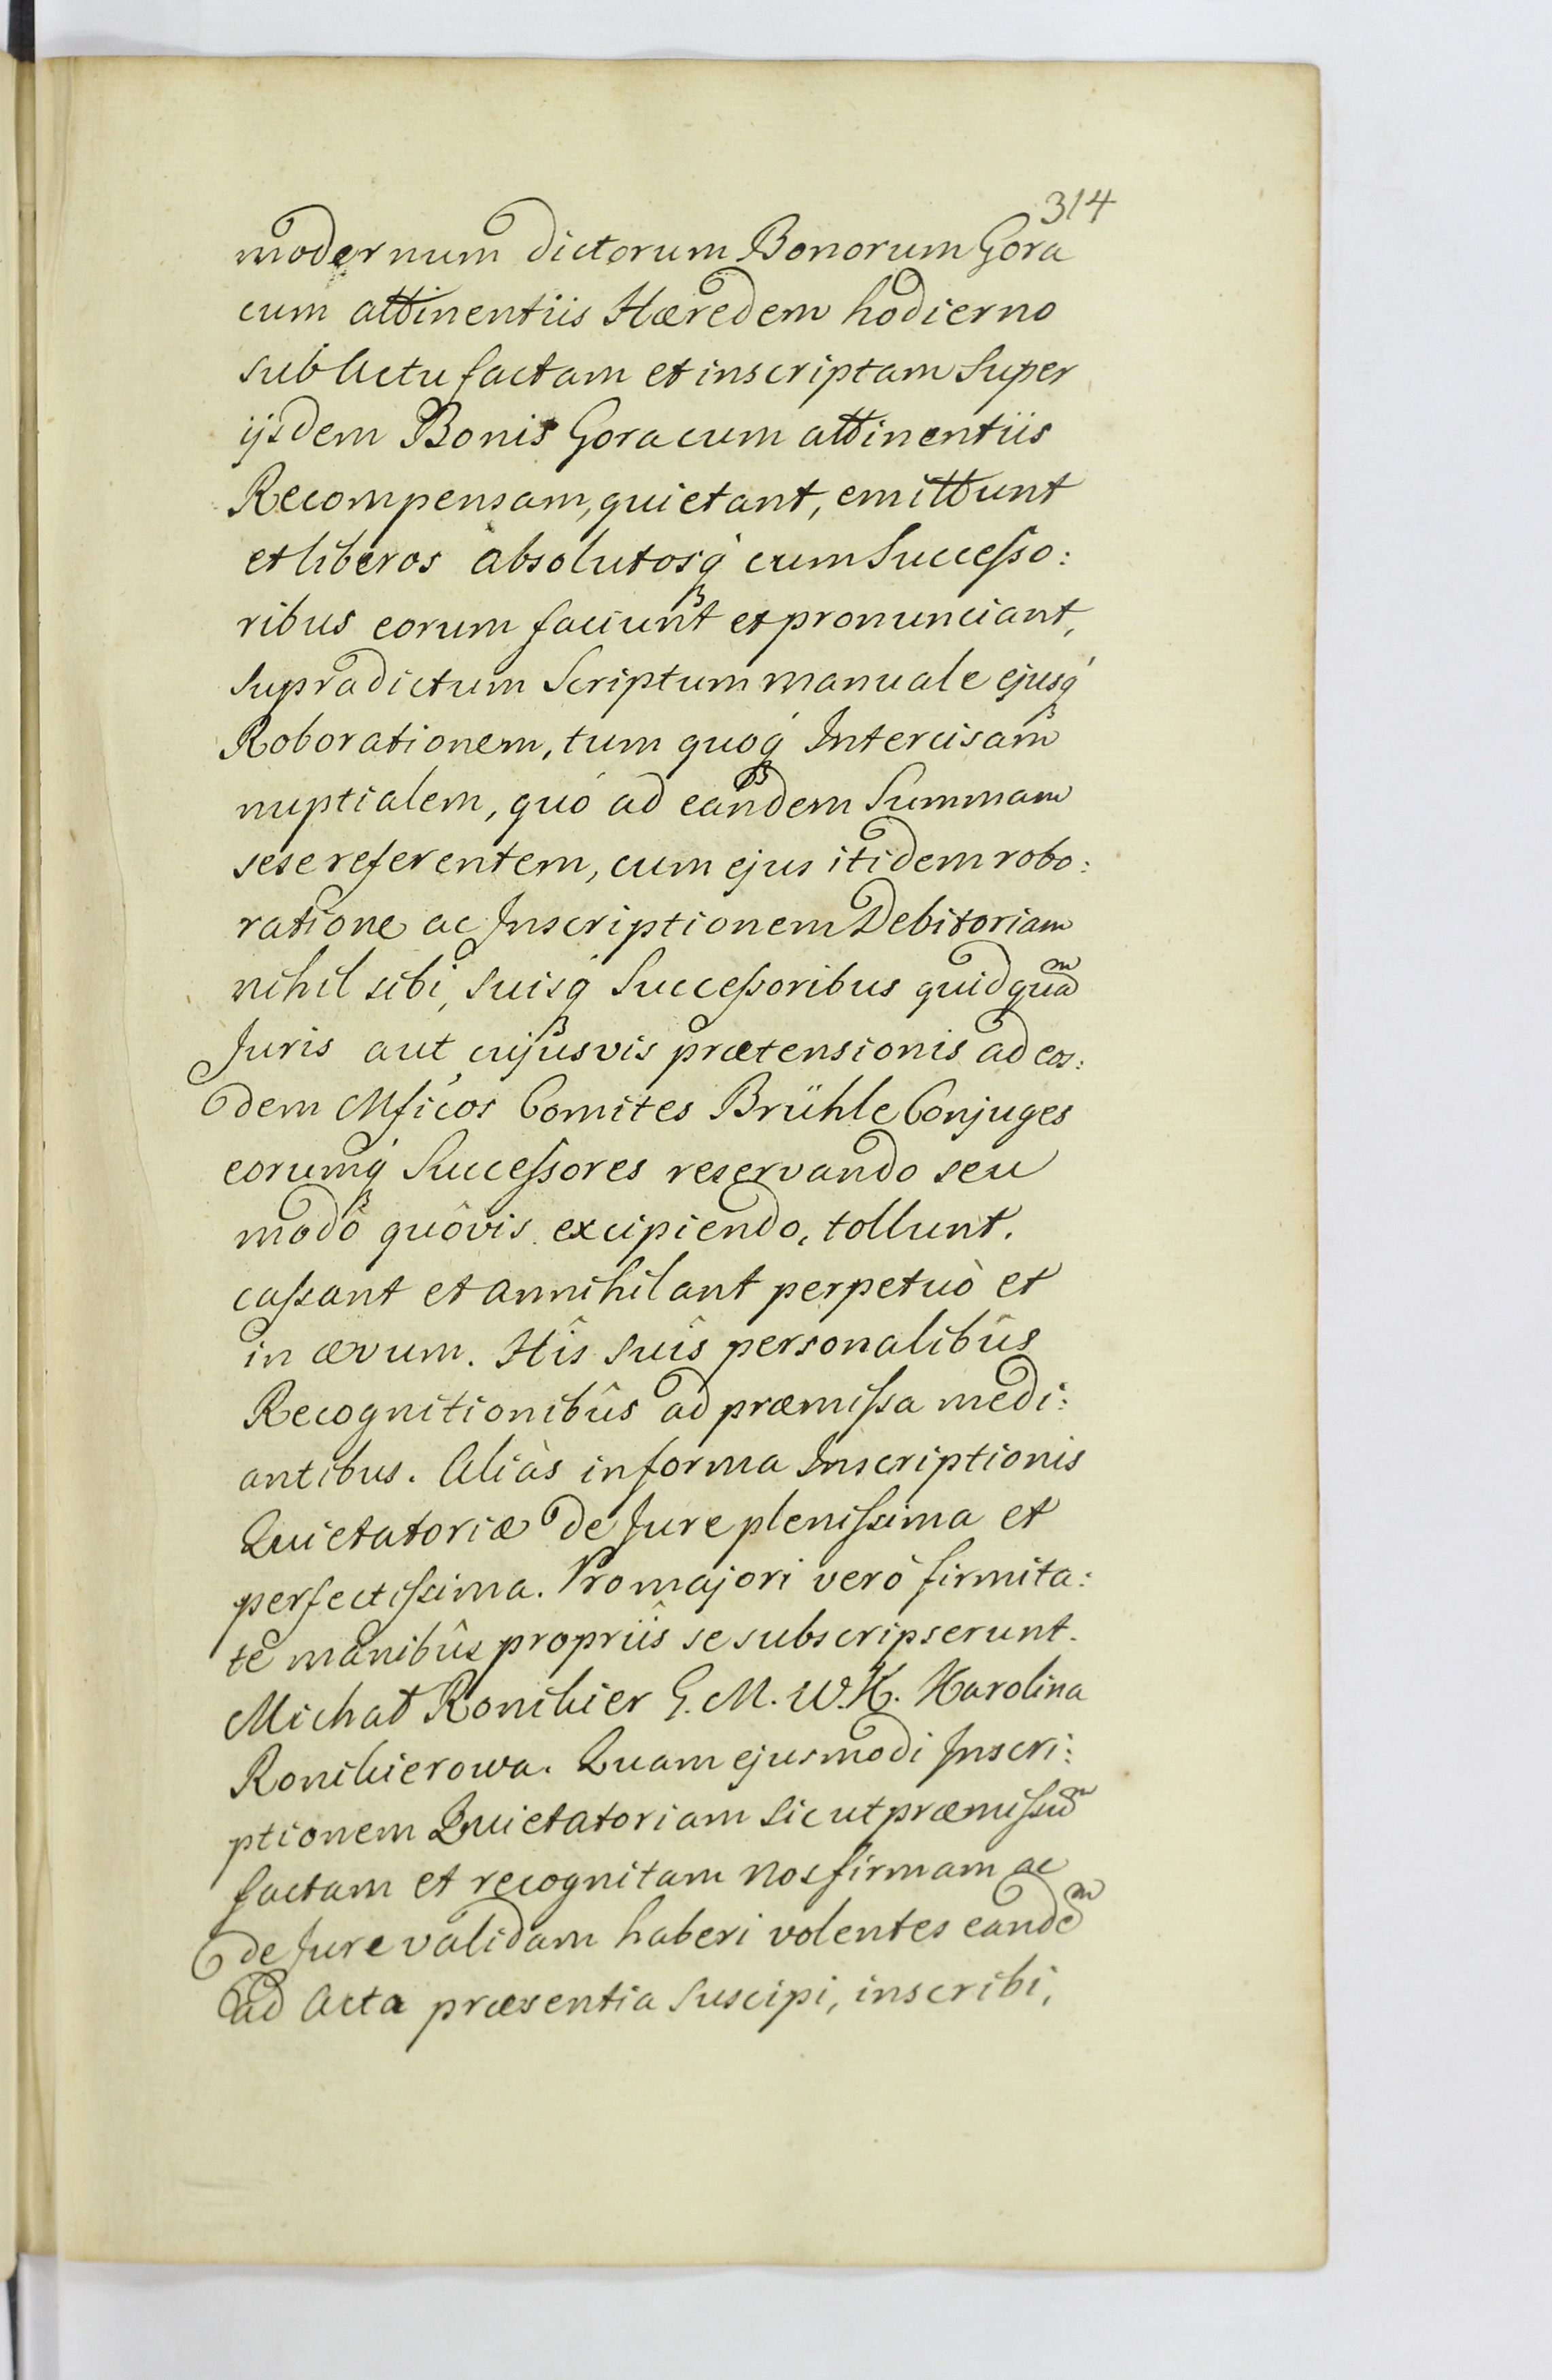 314
modernum dictorum Bonorum Gora
cum attinentiis Hæredem hodierno
sub Actu factam et inscriptam Super
ijsdem Bonis Gora cum attinentiis
Recompensam, quietant, emittunt
et liberos absolutosq́ cum Succeſso:
ribus eorum faciunt et pronunciant,
Supradictum Scriptum manuale ejusq́
Roborationem, tum quoq́ Intercisam
nuptialem, quó ad eandem Summam
sese referentem, cum ejus itidem robo:
ratione ac Inscriptionem Debitoriam
nihil sibi, suisq́ Succeſsoribus quidquam
Juris aut cujusvis prætensionis ad eos:
dem Mficos Comites Brühle Conjuges
eorumq́ Succeſsores reservando seu
modô quôvis excipiendo, tollunt.
caſsant et annihilant perpetuò et
in ævum. Hîs suîs personalibûs
Recognitionibûs ad præmiſsa medi:
antibus. Aliàs in forma Inscriptionis
Quietatoriæ de Jure pleniſsima et
perfectiſsima. Pro majori verò firmita:
te manibûs propriîs se subscripserunt.
Michał Ronikier G. M. W. K. Karolina
Ronikierowa. Quam ejusmodi Inscri:
ptionem Quietatoriam sic ut præmiſsum
factam et recognitam nos firmam ac
de Jure validam haberi volentes eandem
ad Acta præsentia suscipi, inscribi,